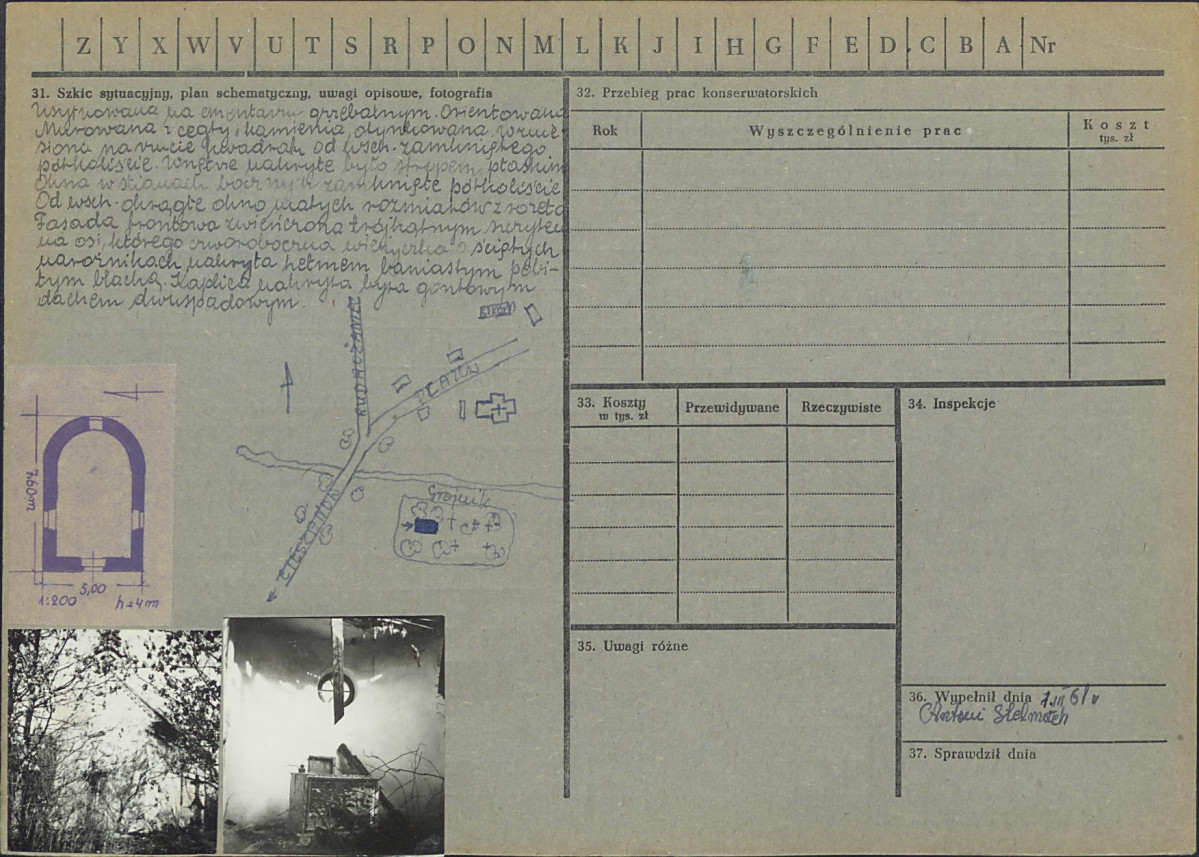 Z Y X W V U T S R P O N M L K J I H G F E D C B A Nr
31. Szkic sytuacyjny, plan schematyczny, uwagi opisowe, fotografia
Usytuowana na cmentarzu grzebalnym. Orientowana
Murowana z cegły i kamienia, otynkowana, wznie-
siona na rzucie kwadratu od wsch. zamkniętego
półkoliście. Wnętrze nakryte było stropem płaskim
Okna w ścianach bocznych zamknięte półkoliście
Od wsch. okrągłe okno małych rozmiarów z rozetą
Fasada frontowa zwieńczona trójkątnym szczytem
na osi, którego czworoboczna wieżyczka o ściętych
narożnikach nakryta hełmem baniastym pobi-
tym blachą. Kaplica nakryta była gontowym
dachem dwuspadowym.
RUDA RÓŻANIEC
PŁAZÓW
CIESZANÓW
Grojnik
7,60 m
5,00
1:200
h=4m
32. Przebieg prac konserwatorskich
Rok
Wyszczególnienie prac
Koszt
tys. zł
33. Koszty
w tys. zł
Przewidywane
Rzeczywiste
34. Inspekcje
35. Uwagi różne
36. Wypełnił dnia 7.III 61 r
Antoni Stelmach
37. Sprawdził dnia